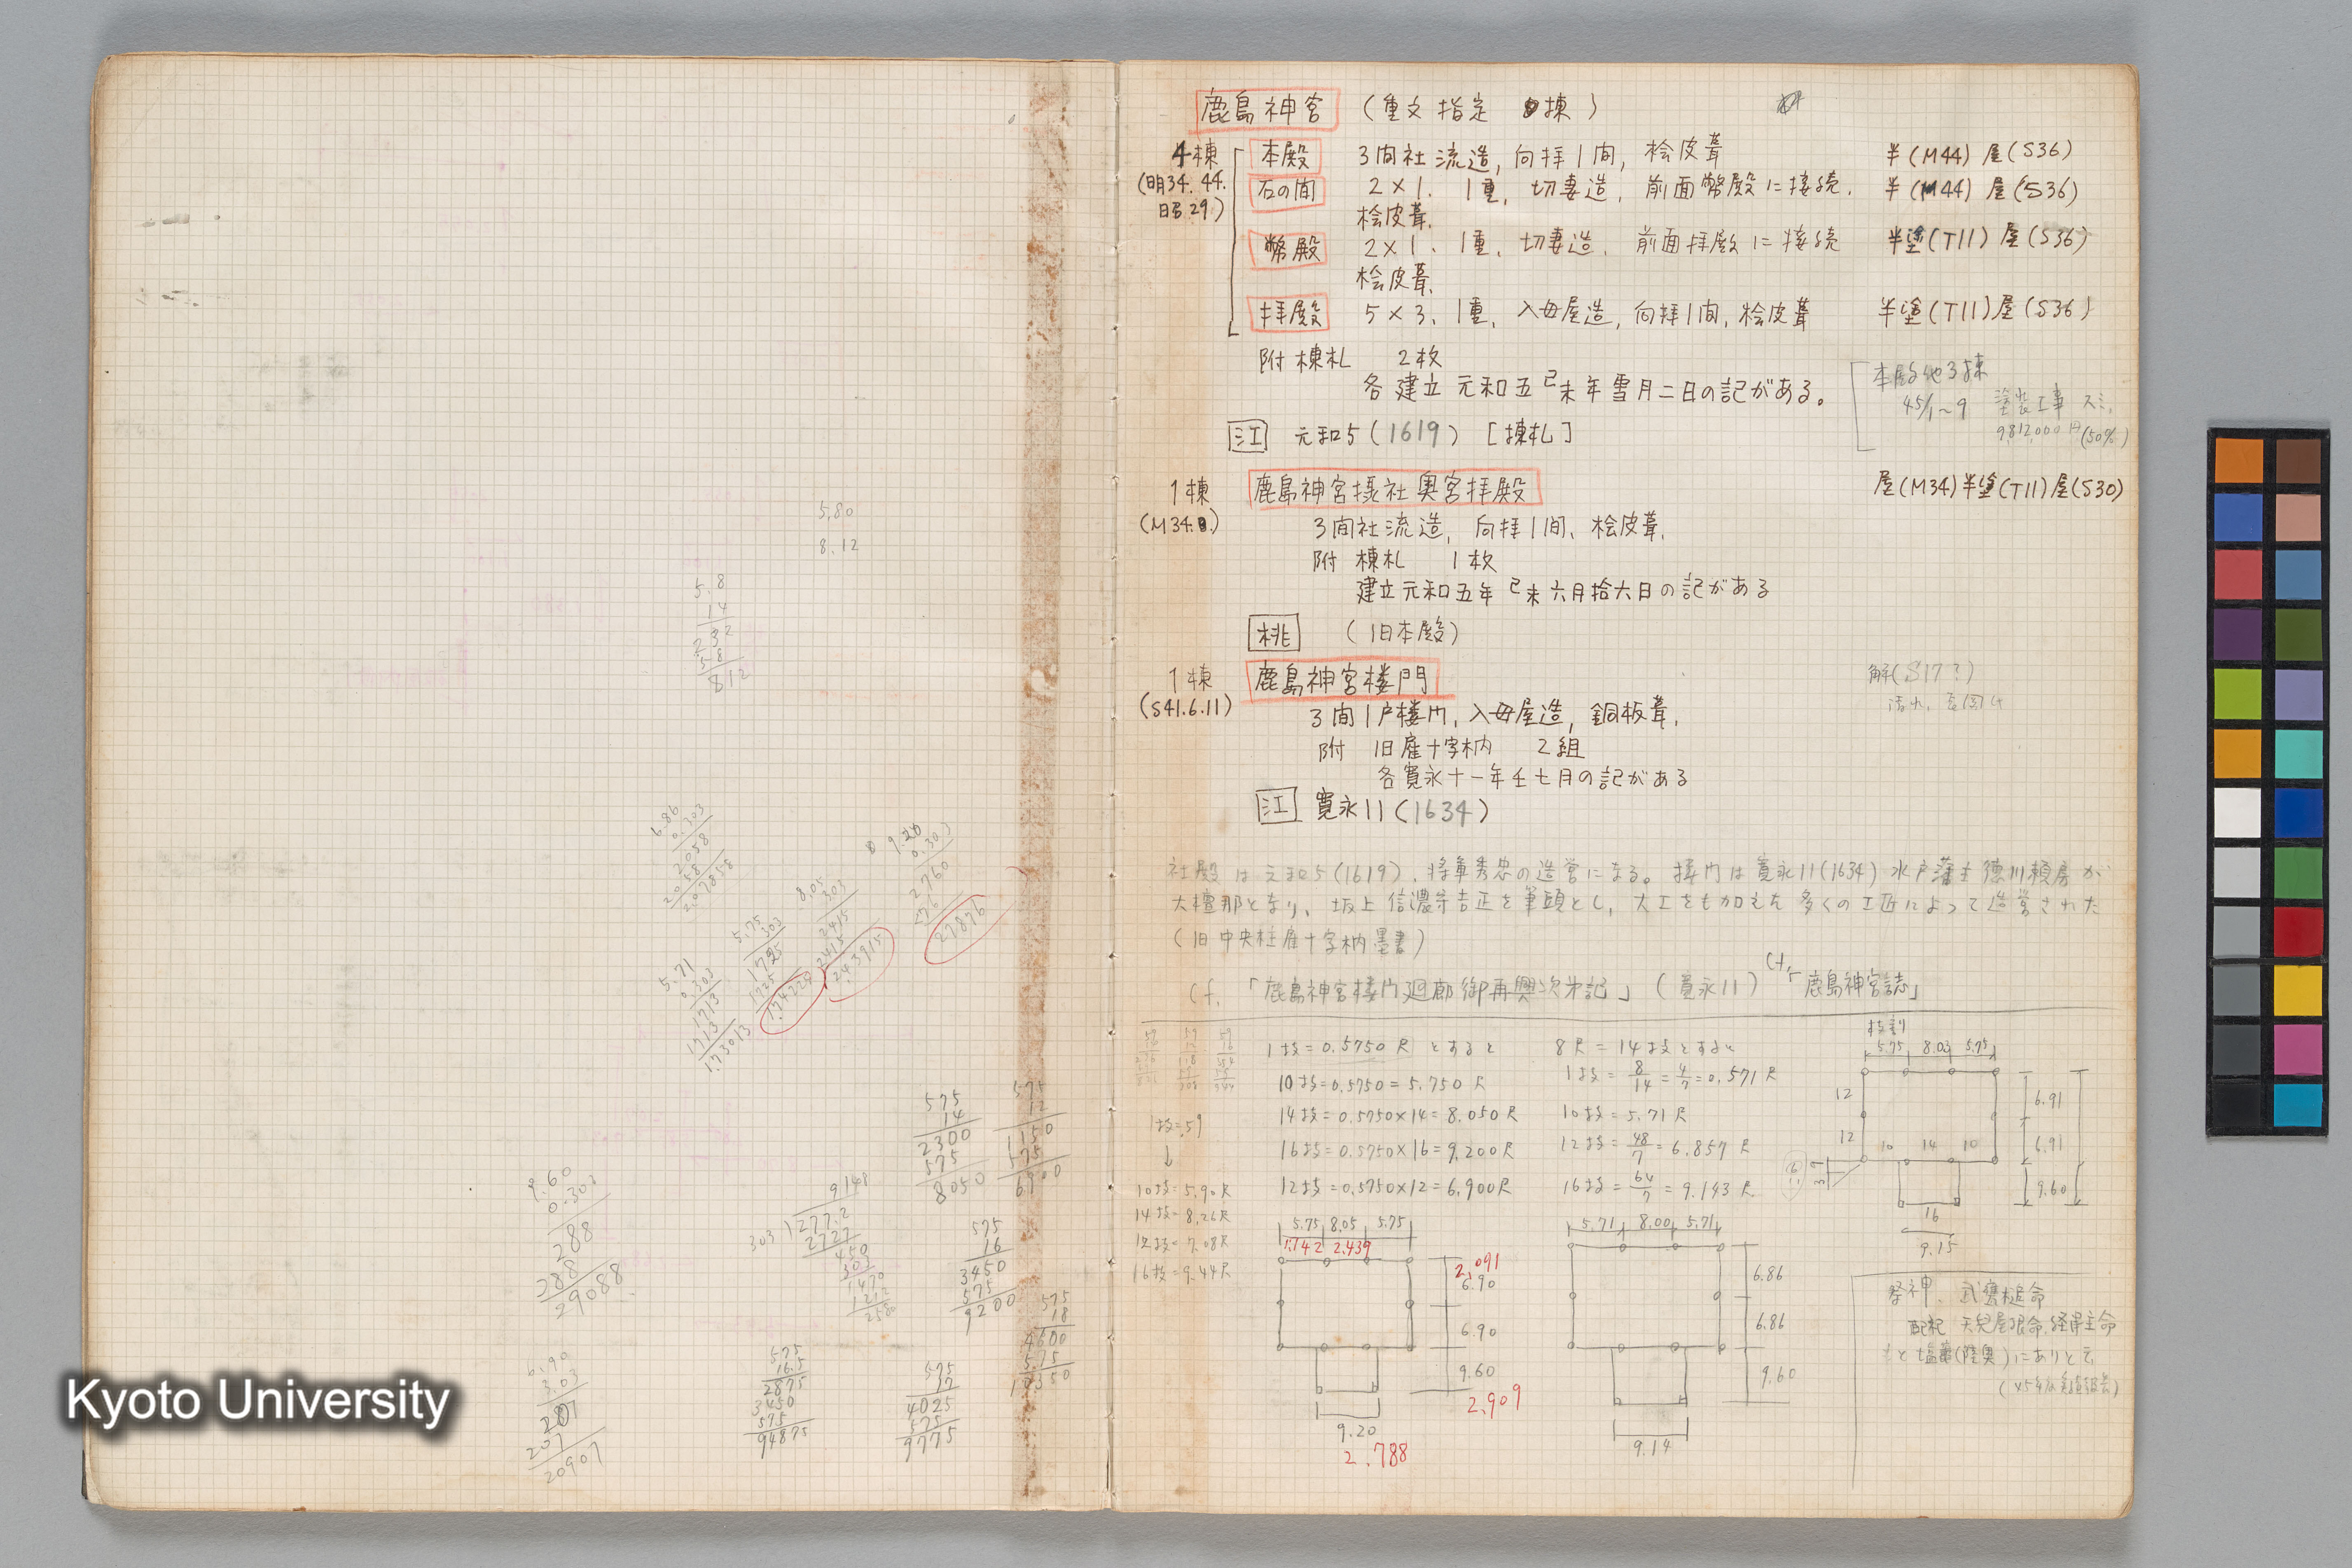 鹿島神宮 (重文指定 棟)
4棟
(明34.44.
昭29)
本殿 3間社流造, 向拝1間, 桧皮葺 半(M44) 屋(S36)
石の間 2×1. 1重, 切妻造, 前面幣殿に接続. 半(M44) 屋(S36)
桧皮葺.
幣殿 2×1、1重、切妻造、前面拝殿に接続 半塗(T11) 屋(S36)
桧皮葺.
拝殿 5×3、1重、入母屋造, 向拝1間, 桧皮葺 半塗(T11)屋(S36)
附 棟札 2枚
各建立元和五己未年雪月二日の記がある。
本殿他3棟
45/1~9 塗装工事 スミ.
9,812,000円(50%)
江 元和5(1619) [棟札]
1棟
(M34.8.)
鹿島神宮摂社奥宮拝殿 屋(M34)半塗(T11)屋(S30)
3間社流造, 向拝1間、桧皮葺.
附 棟札 1枚
建立元和五年己未六月拾六日の記がある
桃 (旧本殿)
1棟
(S41.6.11)
鹿島神宮楼門 解(S17?)
3間1戸楼門, 入母屋造, 銅板葺.
附 旧雇十字枘 2組
各寛永十一年壬七月の記がある
江 寛永11(1634)
社殿は元和5(1619), 将軍秀忠の造営になる。楼門は寛永11(1634)水戸藩主徳川頼房が
大檀那となり、坂上信濃守吉正を筆頭とし, 大工をも加えた多くの工匠によって造営された
(旧中央柱雇十字枘墨書)
cf. 「鹿島神宮楼門廻廊御再興次第記」(寛永11) cf.「鹿島神宮誌」
1支=0.5750尺とすると
10支=0.5750=5.750尺
14支=0.5750×14=8.050尺
16支=0.5750×16=9.200尺
12支=0.5750×12=6.900尺
8尺=14支とすると
1支=8/14=4/7=0.571尺
10支=5.71尺
12支=48/7=6.857尺
16支=64/7=9.143尺
1支=.59
↓
10支=5.90尺
14支=8.26尺
12支=7.08尺
16支=9.44尺
5.75 8.05 5.75
1.742 2.439
2.091
6.90
6.90
9.60
2.909
9.20
2.788
5.71 8.00 5.71
6.86
6.86
9.60
9.14
支割
5.75 8.03 5.75
12
12
10 14 10
6.91
6.91
9.60
16
9.15
祭神. 武甕槌命
配祀 天児屋根命, 経津主命
もと塩竈(陸奥)にありと云
5.80
8.12
5.8
14
232
58
812
6.86
0.303
2058
2058
207858
9.20
0.303
2760
276
27876
8.05
303
2415
2415
243915
5.75
303
1725
1725
174225
5.71
0.303
1713
1713
173013
575
14
2300
575
8050
575
12
1150
575
6900
9.60
0.303
288
288
29088
9148
303
277.2
2727
450
303
1470
1212
2580
575
16
3450
575
9200
575
18
4600
575
10350
6.90
3.03
207
207
20907
575
16.5
2875
3450
575
94875
575
17
4025
575
9775
Kyoto University